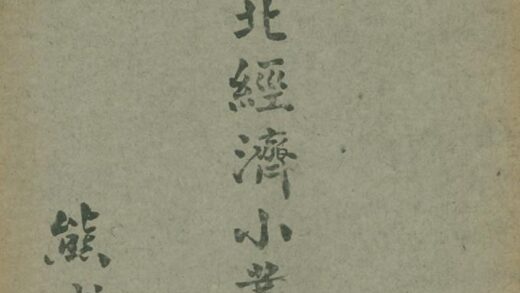 北經濟小
熊